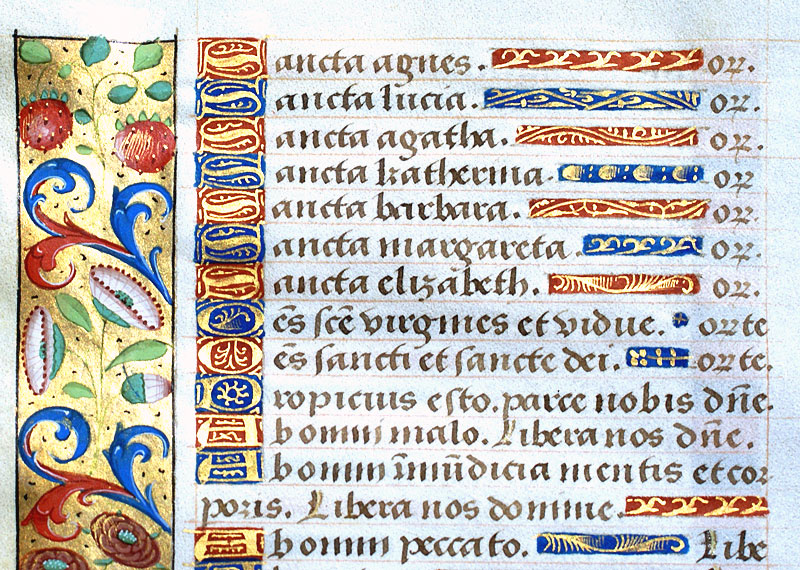 Sancta agnes. or.
Sancta lucia. or.
Sancta agatha. or.
Sancta katherina. or
Sancta barbara. or.
Sancta margareta. or.
Sancta elizabeth. or.
Oēs scē virgines et vidue. orte
Oēs sancti et sancte dei. orte.
Propicius esto. parce nobis dn̄e.
Ab omni malo. Libera nos dn̄e.
Ab omni īmūdicia mentis et cor
poris. Libera nos domine.
Ab omni peccato. Libe